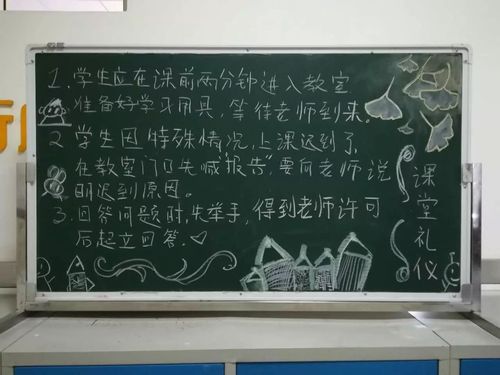 1. 学生应在课前两分钟进入教室
准备好学习用具，等待老师到来。
2. 学生因特殊情况，上课迟到了，
在教室门口先喊"报告"，要向老师说
明迟到原因。
3. 回答问题时，先举手，得到老师许可
后起立回答。
课堂礼仪